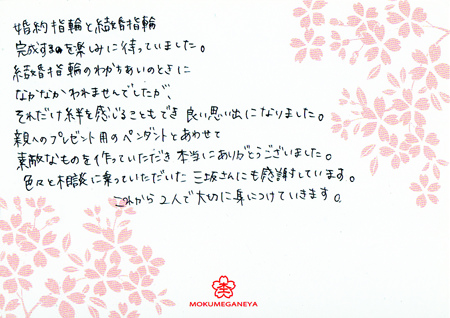 婚約指輪と結婚指輪
完成するのを楽しみに待っていました。
結婚指輪のわかちあいのときに
なかなかわれませんでしたが、
それだけ絆を感じることもでき 良い思い出になりました。
親へのプレゼント用のペンダントとあわせて
素敵なものを作っていただき 本当にありがとうございました。
色々と相談に乗っていただいた 三坂さんにも感謝しています。
これから 2人で大切に身につけていきます。
MOKUMEGANEYA